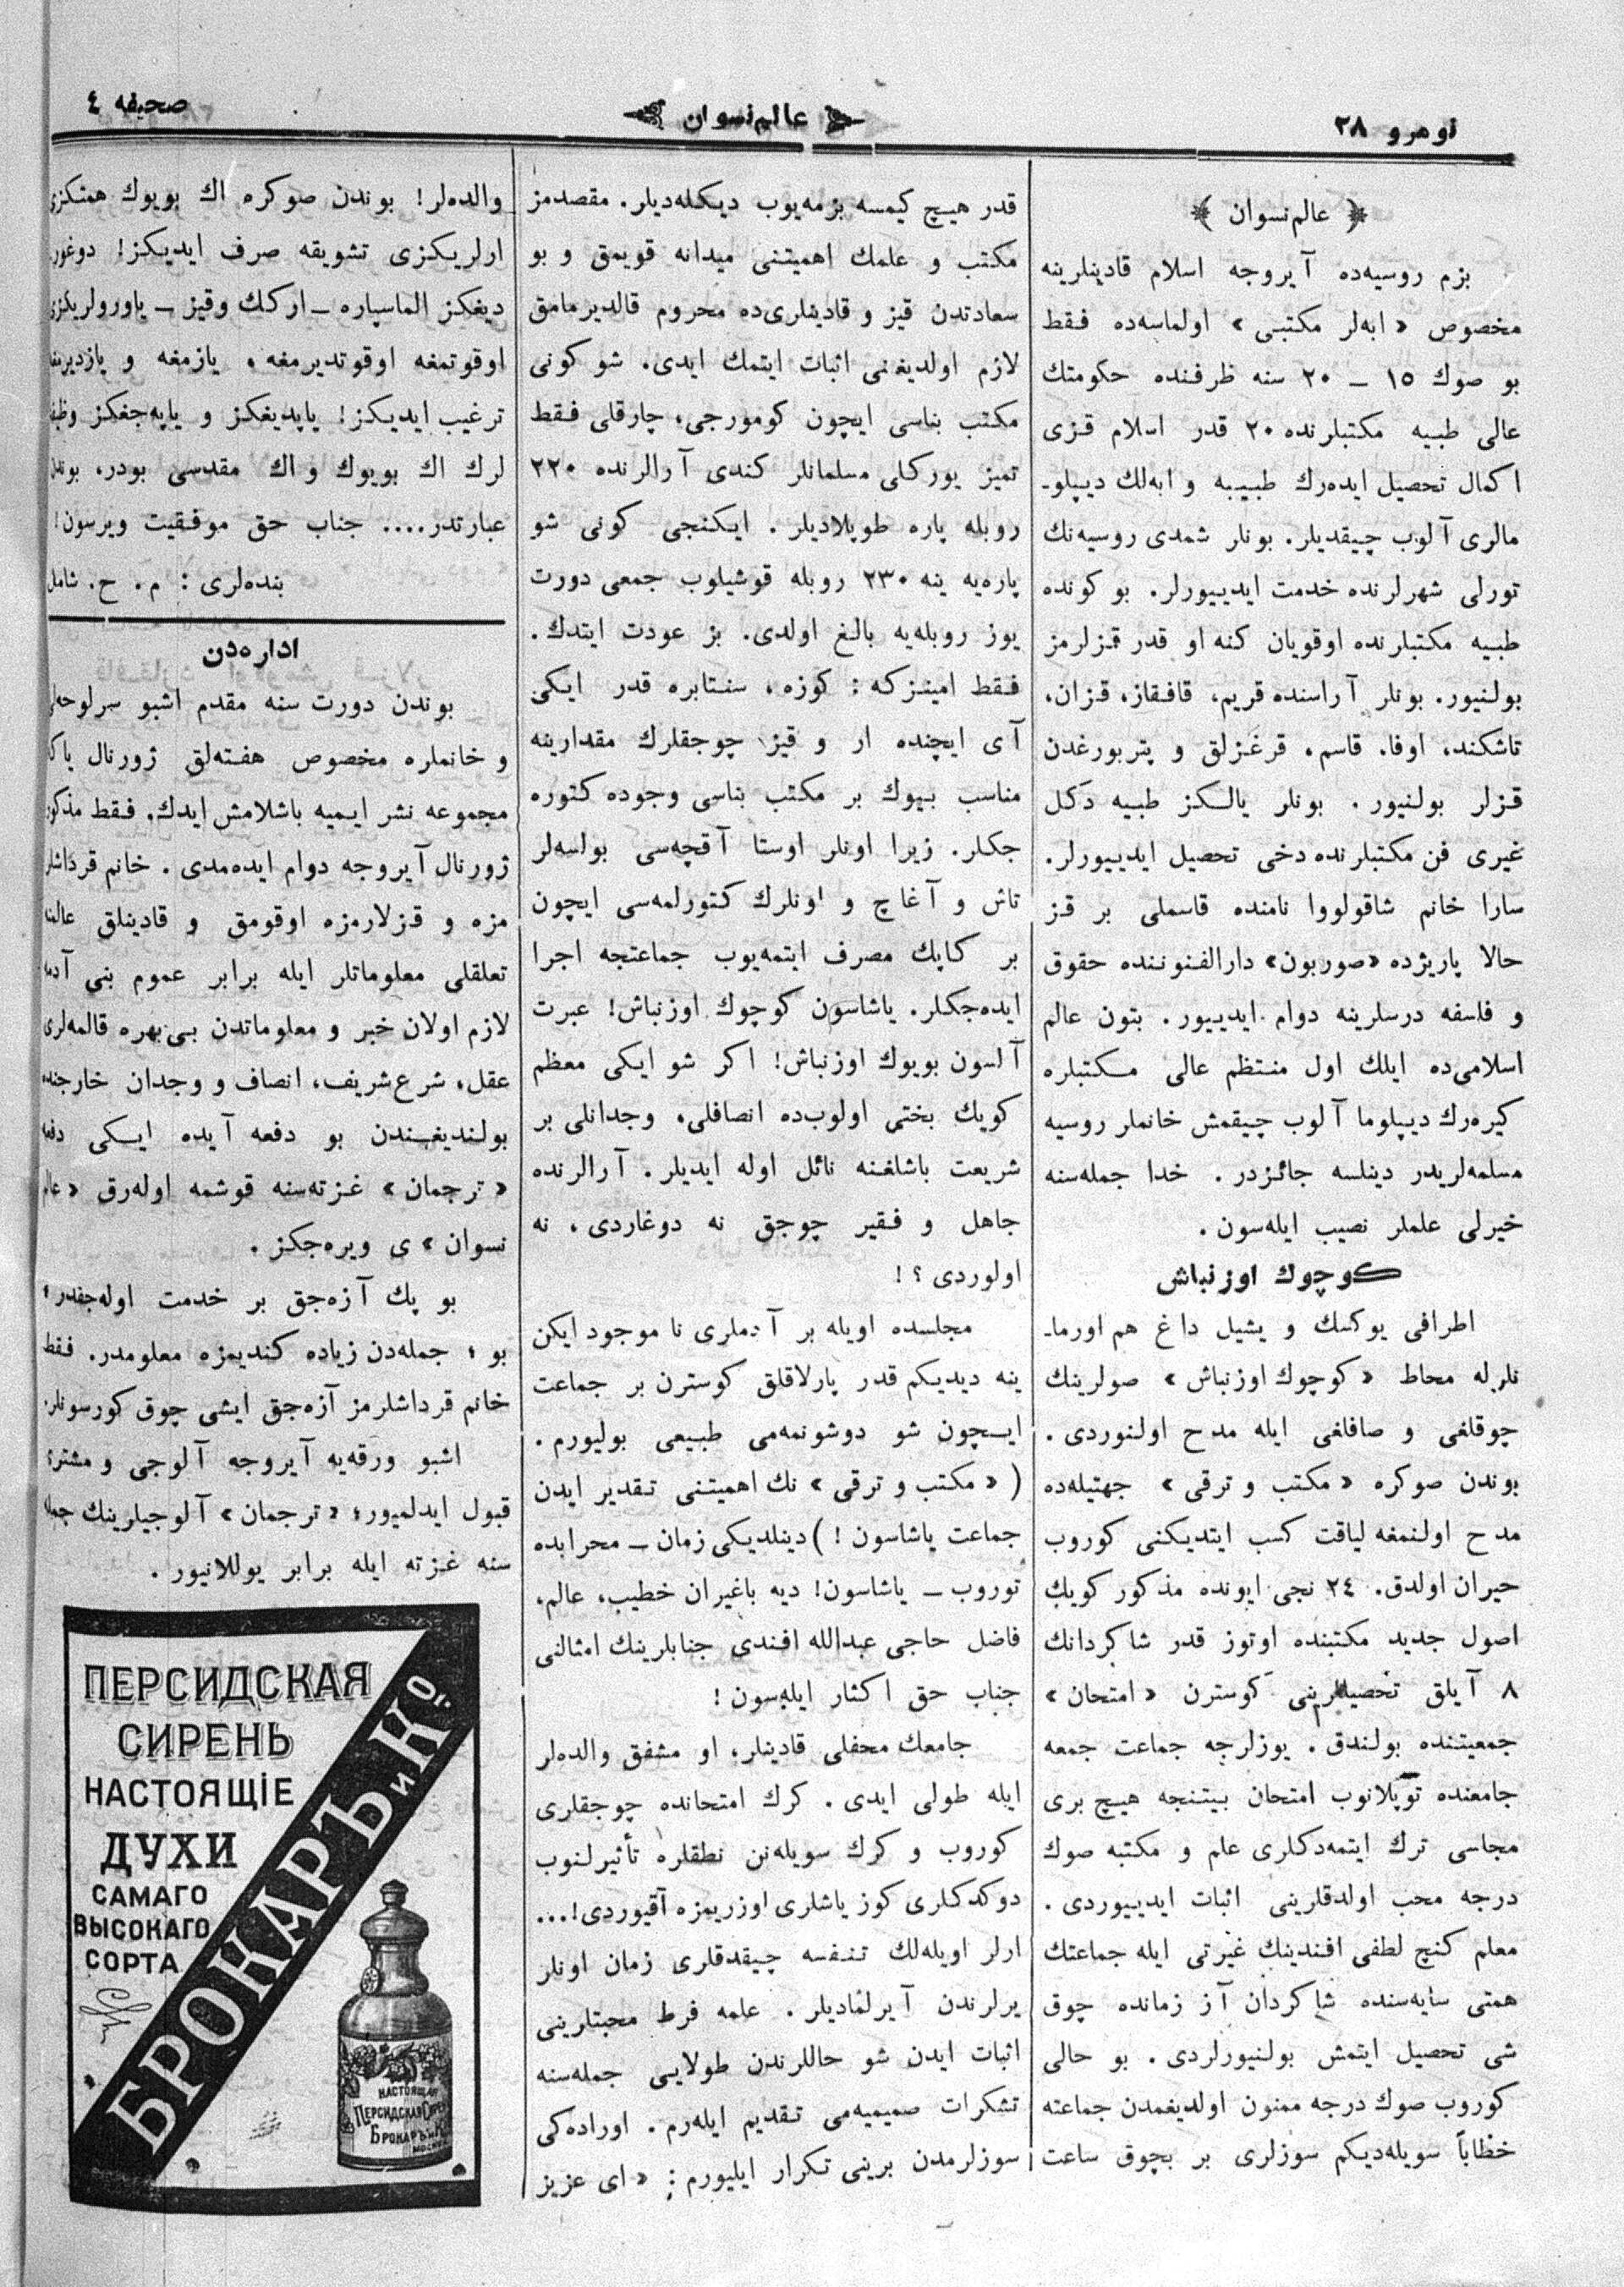 نومرو ٢٨
عالم نسوان
صحيفه ٤
﴿ عالم نسوان ﴾
بزم روسيه‌ده آيروجه اسلام قادينلرينه
مخصوص «ابه‌لر مكتبى» اولماسه‌ده فقط
بو صوك ١٥ ـ ٢٠ سنه ظرفنده حكومتك
عالى طبيه مكتبلرنده ٢٠ قدر اسلام قزى
اكمال تحصيل ايده‌رك طبيبه و ابه‌لك ديپلو۔
مالرى آلوب چيقديلر. بونلر شمدى روسيه‌نك
تورلى شهرلرنده خدمت ايدييورلر. بو كونده
طبيه مكتبلرنده اوقويان كنه او قدر قزلرمز
بولنيور. بونلر آراسنده قريم، قافقاز، قزان،
تاشكند، اوفا، قاسم، قرغزلق و پتربورغدن
قزلر بولنيور. بونلر يالكز طبيه دكل
غيرى فن مكتبلرنده دخى تحصيل ايدييورلر.
سارا خانم شاقولووا نامنده قاسملى بر قز
حالا پاريژده «صوربون» دارالفنوننده حقوق
و فلسفه درسلرينه دوام ايدييور. بتون عالم
اسلامى‌ده ايلك اول منتظم عالى مكتبلره
كيره‌رك ديپلوما آلوب چيقمش خانملر روسيه
مسلمه‌لريدر دينلسه جائزدر. خدا جمله‌سنه
خيرلى علملر نصيب ايله‌سون.
كوچوك اوزنباش
اطرافى يوكسك و يشيل داغ هم اورما۔
نلرله محاط «كوچوك اوزنباش» صولرينك
چوقلغى و صافلغى ايله مدح اولنوردى.
بوندن صوكره «مكتب و ترقى» جهتيله‌ده
مدح اولنمغه لياقت كسب ايتديكنى كوروب
حيران اولدق. ٢٤ نجى ايونده مذكور كويك
اصول جديد مكتبنده اوتوز قدر شاكردانك
٨ آيلق تحصيللرينى كوسترن «امتحان»
جمعيتنده بولندق. يوزلرجه جماعت جمعه
جامعنده توپلانوب امتحان بيتنجه هيچ برى
مجلسى ترك ايتمه‌دكلرى علم و مكتبه صوك
درجه محب اولدقلرينى اثبات ايدييوردى.
معلم كنچ لطفى افندينك غيرتى ايله جماعتك
همتى سايه‌سنده شاكردان آز زمانده چوق
شى تحصيل ايتمش بولنيورلردى. بو حالى
كوروب صوك درجه ممنون اولديغمدن جماعته
خطاباً سويله‌ديكم سوزلرى بر بچوق ساعت
قدر هيچ كيمسه بزمه‌يوب ديكله‌ديلر. مقصدمز
مكتب و علمك اهميتنى ميدانه قويمق و بو
سعادتدن قيز و قادينلرى‌ده محروم قالديرمامق
لازم اولديغنى اثبات ايتمك ايدى. شو كونى
مكتب بناسى ايچون كومورجى، چارقلى فقط
تميز يوركلى مسلمانلر كندى آرالرنده ٢٢٠
روبله پاره طوپلاديلر. ايكنجى كونى شو
پاره‌يه ينه ٢٣٠ روبله قوشيلوب جمعى دورت
يوز روبله‌يه بالغ اولدى. بز عودت ايتدك.
فقط امينزكه: كوزه، سنتابره قدر ايكى
آى ايچنده ار و قيز چوجقلرك مقدارينه
مناسب بيوك بر مكتب بناسى وجوده كتوره
جكلر. زيرا اونلر اوستا آقچه‌سى بولسه‌لر
تاش و آغاچ و اونلرك كتورلمه‌سى ايچون
بر كاپك مصرف ايتمه‌يوب جماعتجه اجرا
ايده‌جكلر. ياشاسون كوچوك اوزنباش! عبرت
آلسون بويوك اوزنباش! اكر شو ايكى معظم
كويك بختى اولوب‌ده انصافلى، وجدانلى بر
شريعت باشلغنه نائل اوله ايديلر. آرالرنده
جاهل و فقير چوجق نه دوغاردى، نه
اولوردى؟!
مجلسده اويله بر آدملرى نا موجود ايكن
ينه ديديكم قدر پارلاقلق كوسترن بر جماعت
ايچون شو دوشونمه‌مى طبيعى بوليورم.
(«مكتب و ترقى» نك اهميتنى تقدير ايدن
جماعت ياشاسون!) دينلديكى زمان ـ محرابده
توروب ـ ياشاسون! ديه باغيران خطيب، عالم،
فاضل حاجى عبدالله افندى جنابلرينك امثالنى
جناب حق اكثار ايله‌سون!
جامعك محفلى قادينلر، او مشفق والده‌لر
ايله طولى ايدى. كرك امتحانده چوجقلرى
كوروب و كرك سويله‌نن نطقلره تأثيرلنوب
دوكدكلرى كوز ياشلرى اوزريمزه آقيوردى!...
ارلر اويله‌لك تنفسه چيقدقلرى زمان اونلر
يرلرندن آيرلماديلر. علمه فرط محبتلرينى
اثبات ايدن شو حاللرندن طولايى جمله‌سنه
تشكرات صميميه‌مى تقديم ايله‌رم. اوراده‌كى
سوزلرمدن برينى تكرار ايليورم: «اى عزيز
والده‌لر! بوندن صوكره اك بويوك همتكزى
ارلريكزى تشويقه صرف ايديكز! دوغور
ديغكز الماسپاره ـ اركك وقيز ـ ياورولريكزى
اوقوتمغه اوقوتديرمغه، يازمغه و يازديرمغه
ترغيب ايديكز! ياپديغكز و ياپه‌جغكز وظيفه
لرك اك بويوك و اك مقدسى بودر، بوندن
عبارتدر.... جناب حق موفقيت ويرسون!
بنده‌لرى: م. ح. شامل
اداره‌دن
بوندن دورت سنه مقدم اشبو سرلوحه‌لى
و خانملره مخصوص هفته‌لق ژورنال ياكه
مجموعه نشر ايميه باشلامش ايدك. فقط مذكور
ژورنال آيروجه دوام ايده‌مدى. خانم قرداشلر
مزه و قزلارمزه اوقومق و قادينلق عالمنه
تعلقلى معلوماتلر ايله برابر عموم بنى آدمه
لازم اولان خبر و معلوماتدن بى‌بهره قالمه‌لرى
عقل، شرع شريف، انصاف و وجدان خارجنده
بولنديغندن بو دفعه آيده ايكى دفعه
«ترجمان» غزته‌سنه قوشمه اوله‌رق «عالم
نسوان»ى ويره‌جكز.
بو پك آزه‌جق بر خدمت اوله‌جقدر؛
بو؛ جمله‌دن زياده كنديمزه معلومدر. فقط
خانم قرداشلرمز آزه‌جق ايشى چوق كورسونلر.
اشبو ورقه‌يه آيروجه آلوجى و مشترى
قبول ايدلميور؛ «ترجمان» آلوجيلرينك جمله
سنه غزته ايله برابر يوللانيور.
ПЕРСИДСКАЯ
СИРЕНЬ
НАСТОЯЩІЕ
ДУХИ
САМАГО
ВЫСОКАГО
СОРТА
БРОКАРЪ и Кº
НАСТОЯЩАЯ
ПЕРСИДСКАЯ СИРЕНЬ
БРОКАРЪ и К
МОСКВА